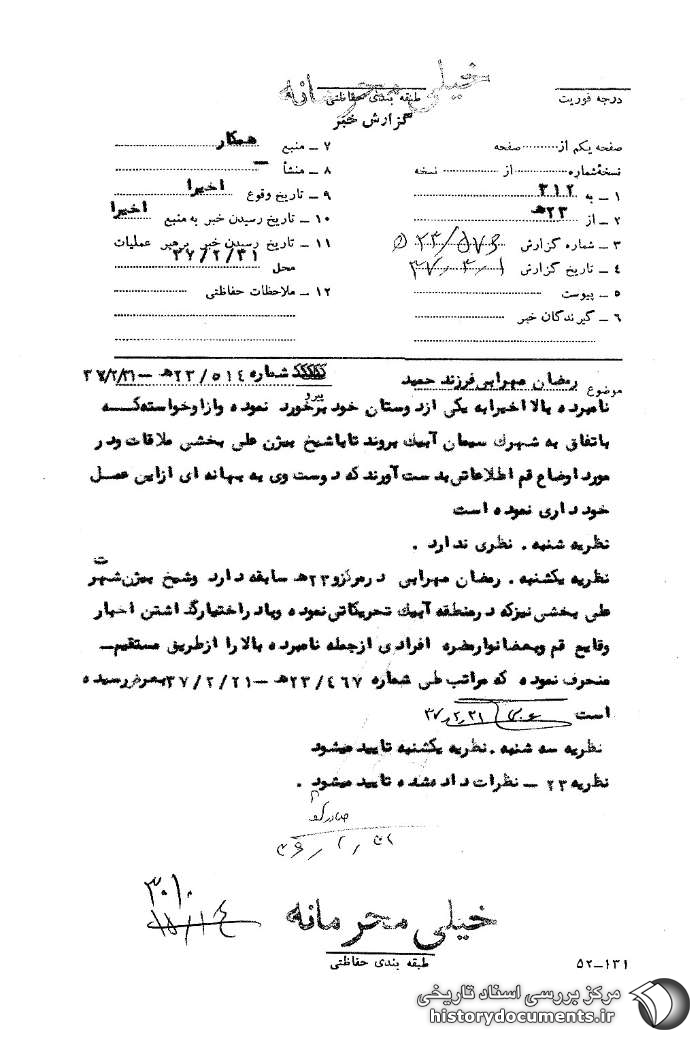 خیلی محرمانه
درجه فوریت
طبقه بندی حفاظتی
گزارش خبر
صفحه یکم از ........ صفحه
نسخه شماره ........ از ........ نسخه
۱ – به ۳۱۲
۲ – از ۲۳ هـ
۳ – شماره گزارش
۴ – تاریخ گزارش
۵ – پیوست
۶ – گیرندگان خبر
۷ – منبع همکار
۸ – منشأ –
۹ – تاریخ وقوع اخیرا
۱۰ – تاریخ رسیدن خبر به منبع اخیرا
۱۱ – تاریخ رسیدن خبر برهبر عملیات
محل ۳۷/۲/۳۱
۱۲ – ملاحظات حفاظتی
موضوع رمضان مهرابی فرزند حمید
پیرو شماره ۲۳/۵۱۴ هـ – ۳۷/۲/۳۱
نامبرده بالا اخیرا به یکی از دوستان خود برخورد نموده و از او خواسته که
باتفاق به شهرک سیمان آبیک بروند تا با شیخ بیژن علی بخشی ملاقات و در
مورد اوضاع قم اطلاعاتی بدست آورند که دوست وی به بهانه ای از این عمل
خود داری نموده است
نظریه شنبه . نظری ندارد .
نظریه یکشنبه . رمضان مهرابی در مرکز و ۲۳ هـ سابقه دارد و شیخ بیژن شهرت
علی بخشی نیز که در منطقه آبیک تحریکاتی نموده و با در اختیار گذاشتن اخبار
وقایع قم و بعضا نوار مضره افرادی از جمله نامبرده بالا را از طریق مستقیم –
منحرف نموده که مراتب طی شماره ۲۳/۴۶۷ هـ – ۳۷/۲/۲۱ بعرض رسیده
است
نظریه سه شنبه . نظریه یکشنبه تایید میشود
نظریه ۲۳ – نظرات داده شده تایید میشود .
خیلی محرمانه
طبقه بندی حفاظتی
۵۲–۱۳۱
مرکز بررسی اسناد تاریخی
historydocuments.ir